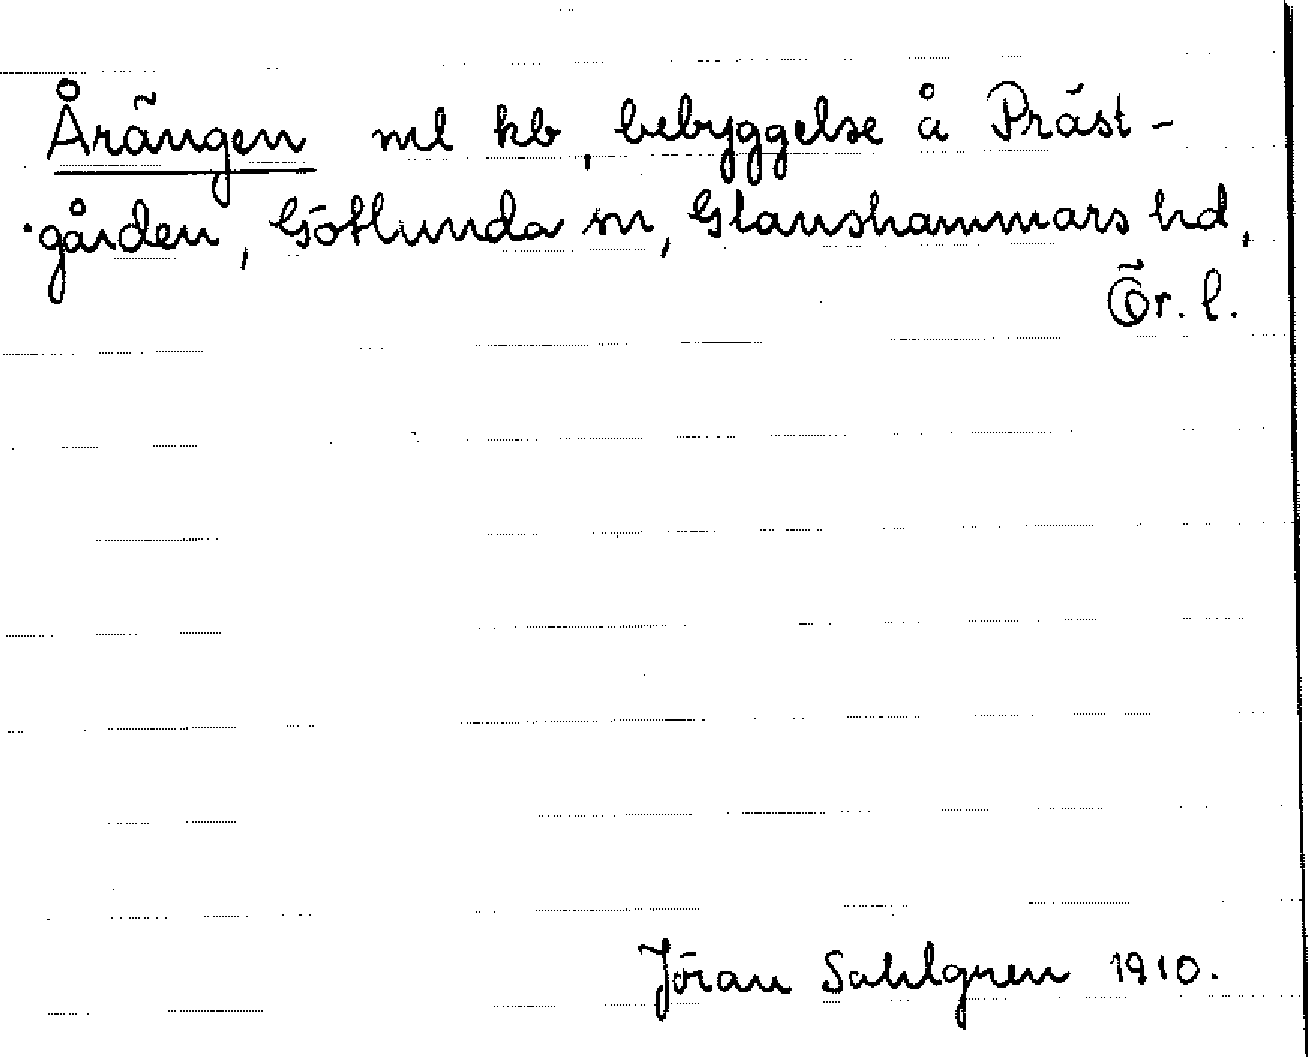 Årängen ml kb, bebyggelse å Präst-
gården, Götlunda sn, Glanshammars hd,
Ör. l.
Jöran Sahlgren 1910.